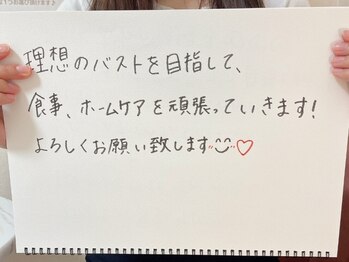 理想のバストを目指して、
食事、ホームケアを頑張っていきます!
よろしくお願い致します